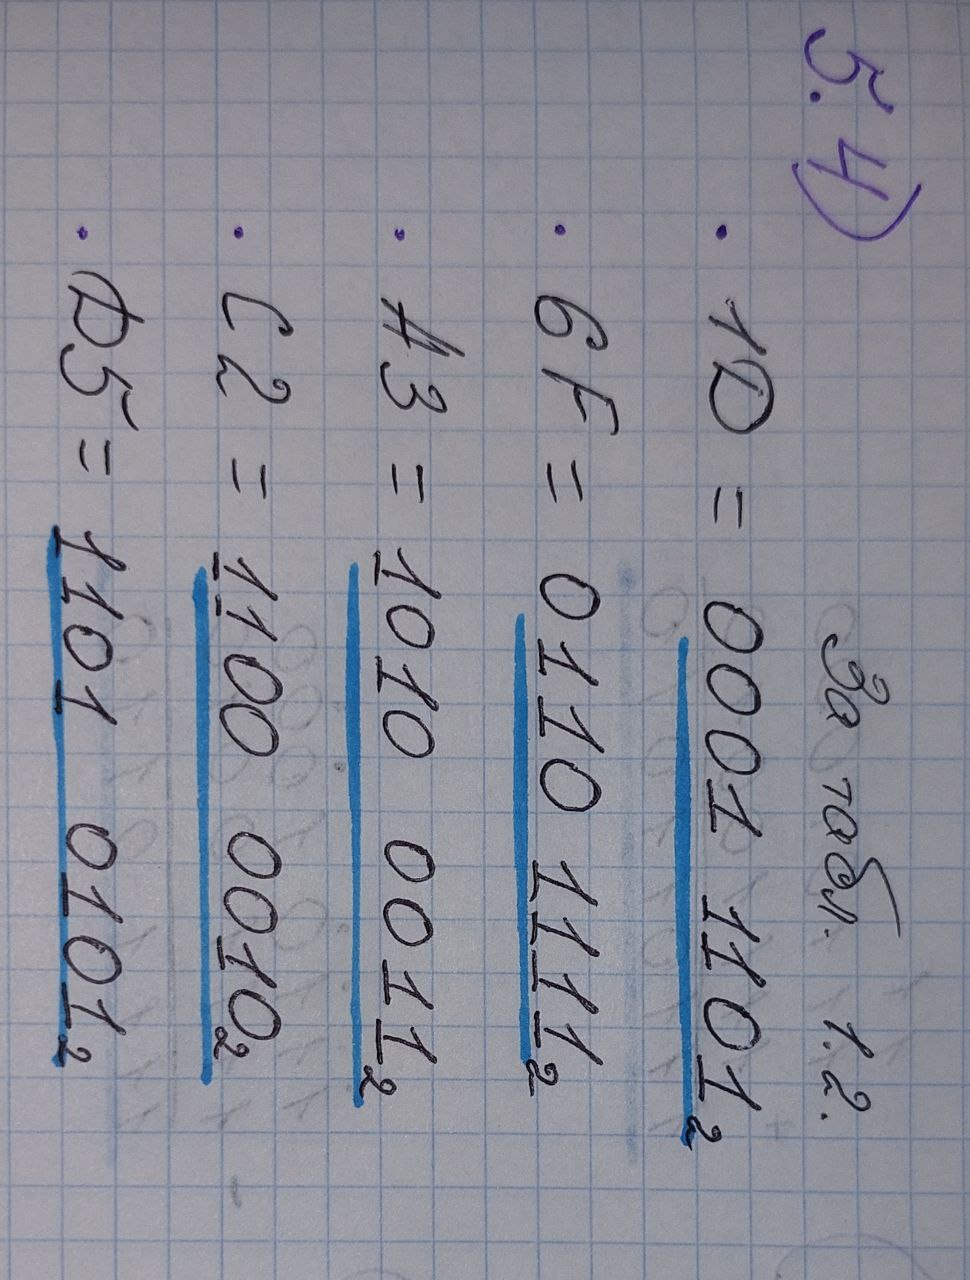 5.4) За табл. 1.2.
• 1D = 0001 1101₂
• 6F = 0110 1111₂
• A3 = 1010 0011₂
• C2 = 1100 0010₂
• D5 = 1101 0101₂